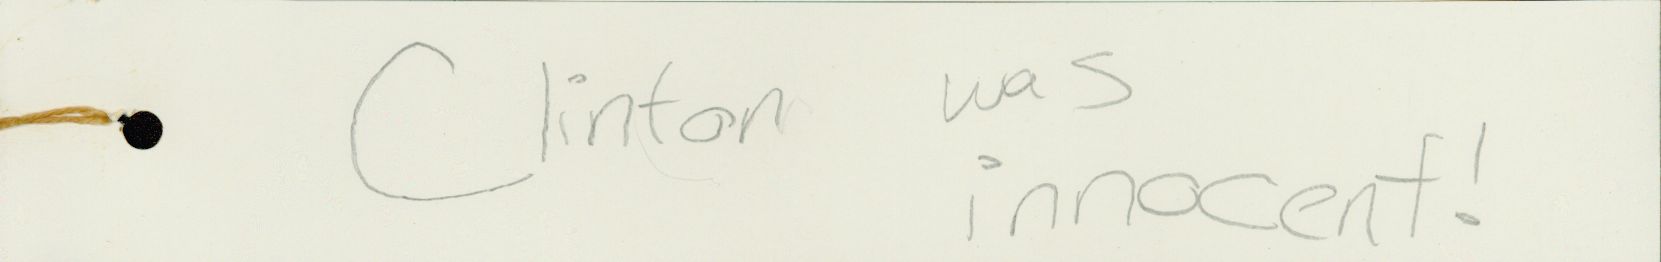 Clinton was
innocent!